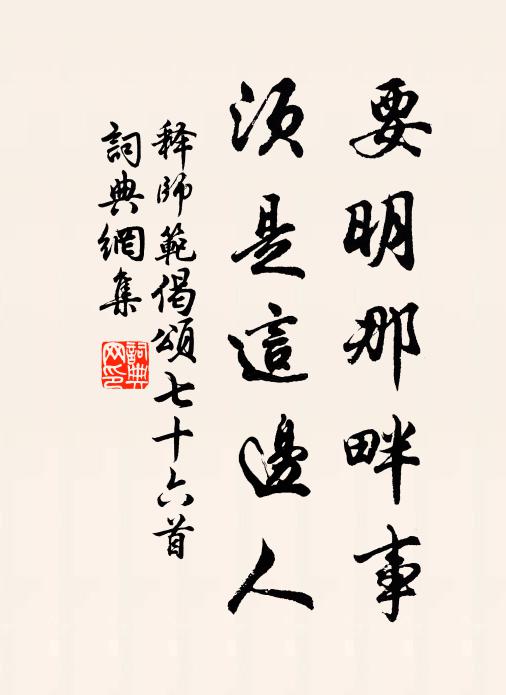 要明那畔事
須是這邊人
释師範偈頌七十六首
詞典網集
詞典
网印